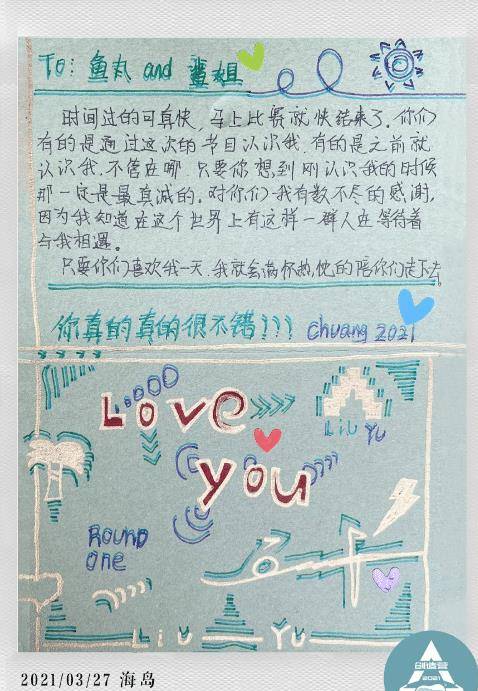 To: 鱼丸 and 鲨姐
时间过的可真快,马上比赛就快结束了。你们
有的是通过这次的节目认识我,有的是之前就
认识我,不管在哪,只要你想到刚认识我的时候
那一定是最真诚的。对你们我有数不尽的感谢,
因为我知道在这个世界上有这样一群人在等待着
与我相遇。
只要你们喜欢我一天,我就会满怀热忱的陪你们走下去。
你真的真的很不错!!!
Chuang 2021
Love
Liu Yu
you
Round
one
Liu Yu
2021/03/27 海岛
创造营
2021